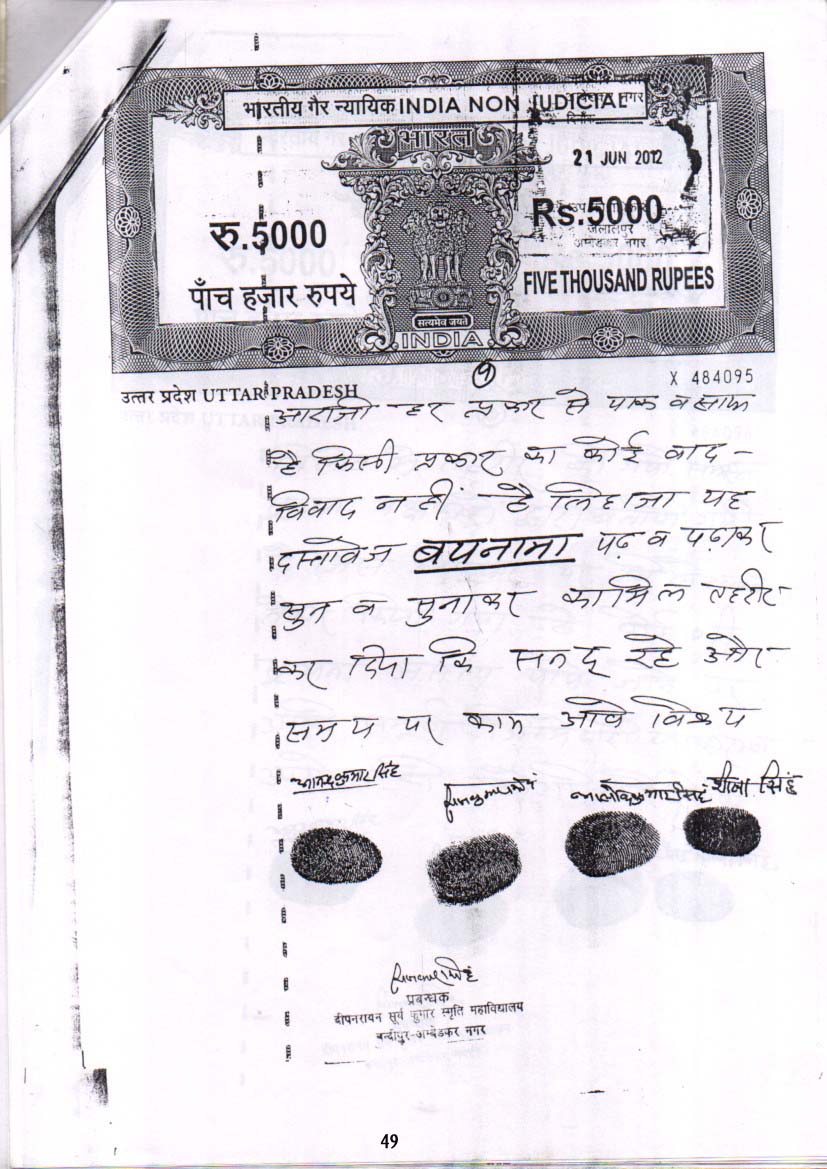 भारतीय गैर न्यायिक INDIA NON JUDICIAL
भारत
21 JUN 2012
रु.5000
Rs.5000
जलालपुर
अम्बेडकर नगर
पाँच हजार रुपये
FIVE THOUSAND RUPEES
सत्यमेव जयते
INDIA
उत्तर प्रदेश UTTAR PRADESH
X 484095
आराजी हर प्रकार से पाक व साफ
है किसी प्रकार का कोई वाद-
विवाद नहीं है लिहाजा यह
दस्तावेज बयनामा पढ़ व पढ़ाकर
सुन व सुनाकर तहरीर
कर दिया कि सनद रहे और
समय पर काम आवे विक्रय
आलोक कुमार सिंह शीला सिंह
प्रबन्धक
दीपनरायन सूर्य कुमार स्मृति महाविद्यालय
बन्दीपुर-अम्बेडकर नगर
49